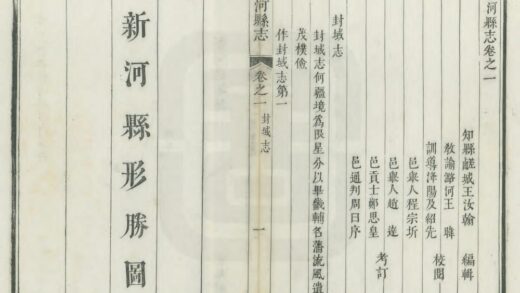 河縣志卷之一
知縣鹺城王汝翰 編輯
敎諭潞河王 曄
訓導洋陽及紹先 校閱
邑舉人程宗圻
邑舉人趙 逵
邑貢士鄭思皇 考訂
邑通判周日序
封域志
封域志何疆境爲限星分以畢畿輔名藩流風遺
茂樸儉
作封域志第一
河縣志
卷之一
封域志
一
新河縣形勝圖